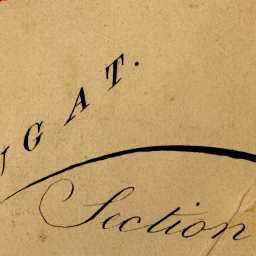 UGAT.
Section